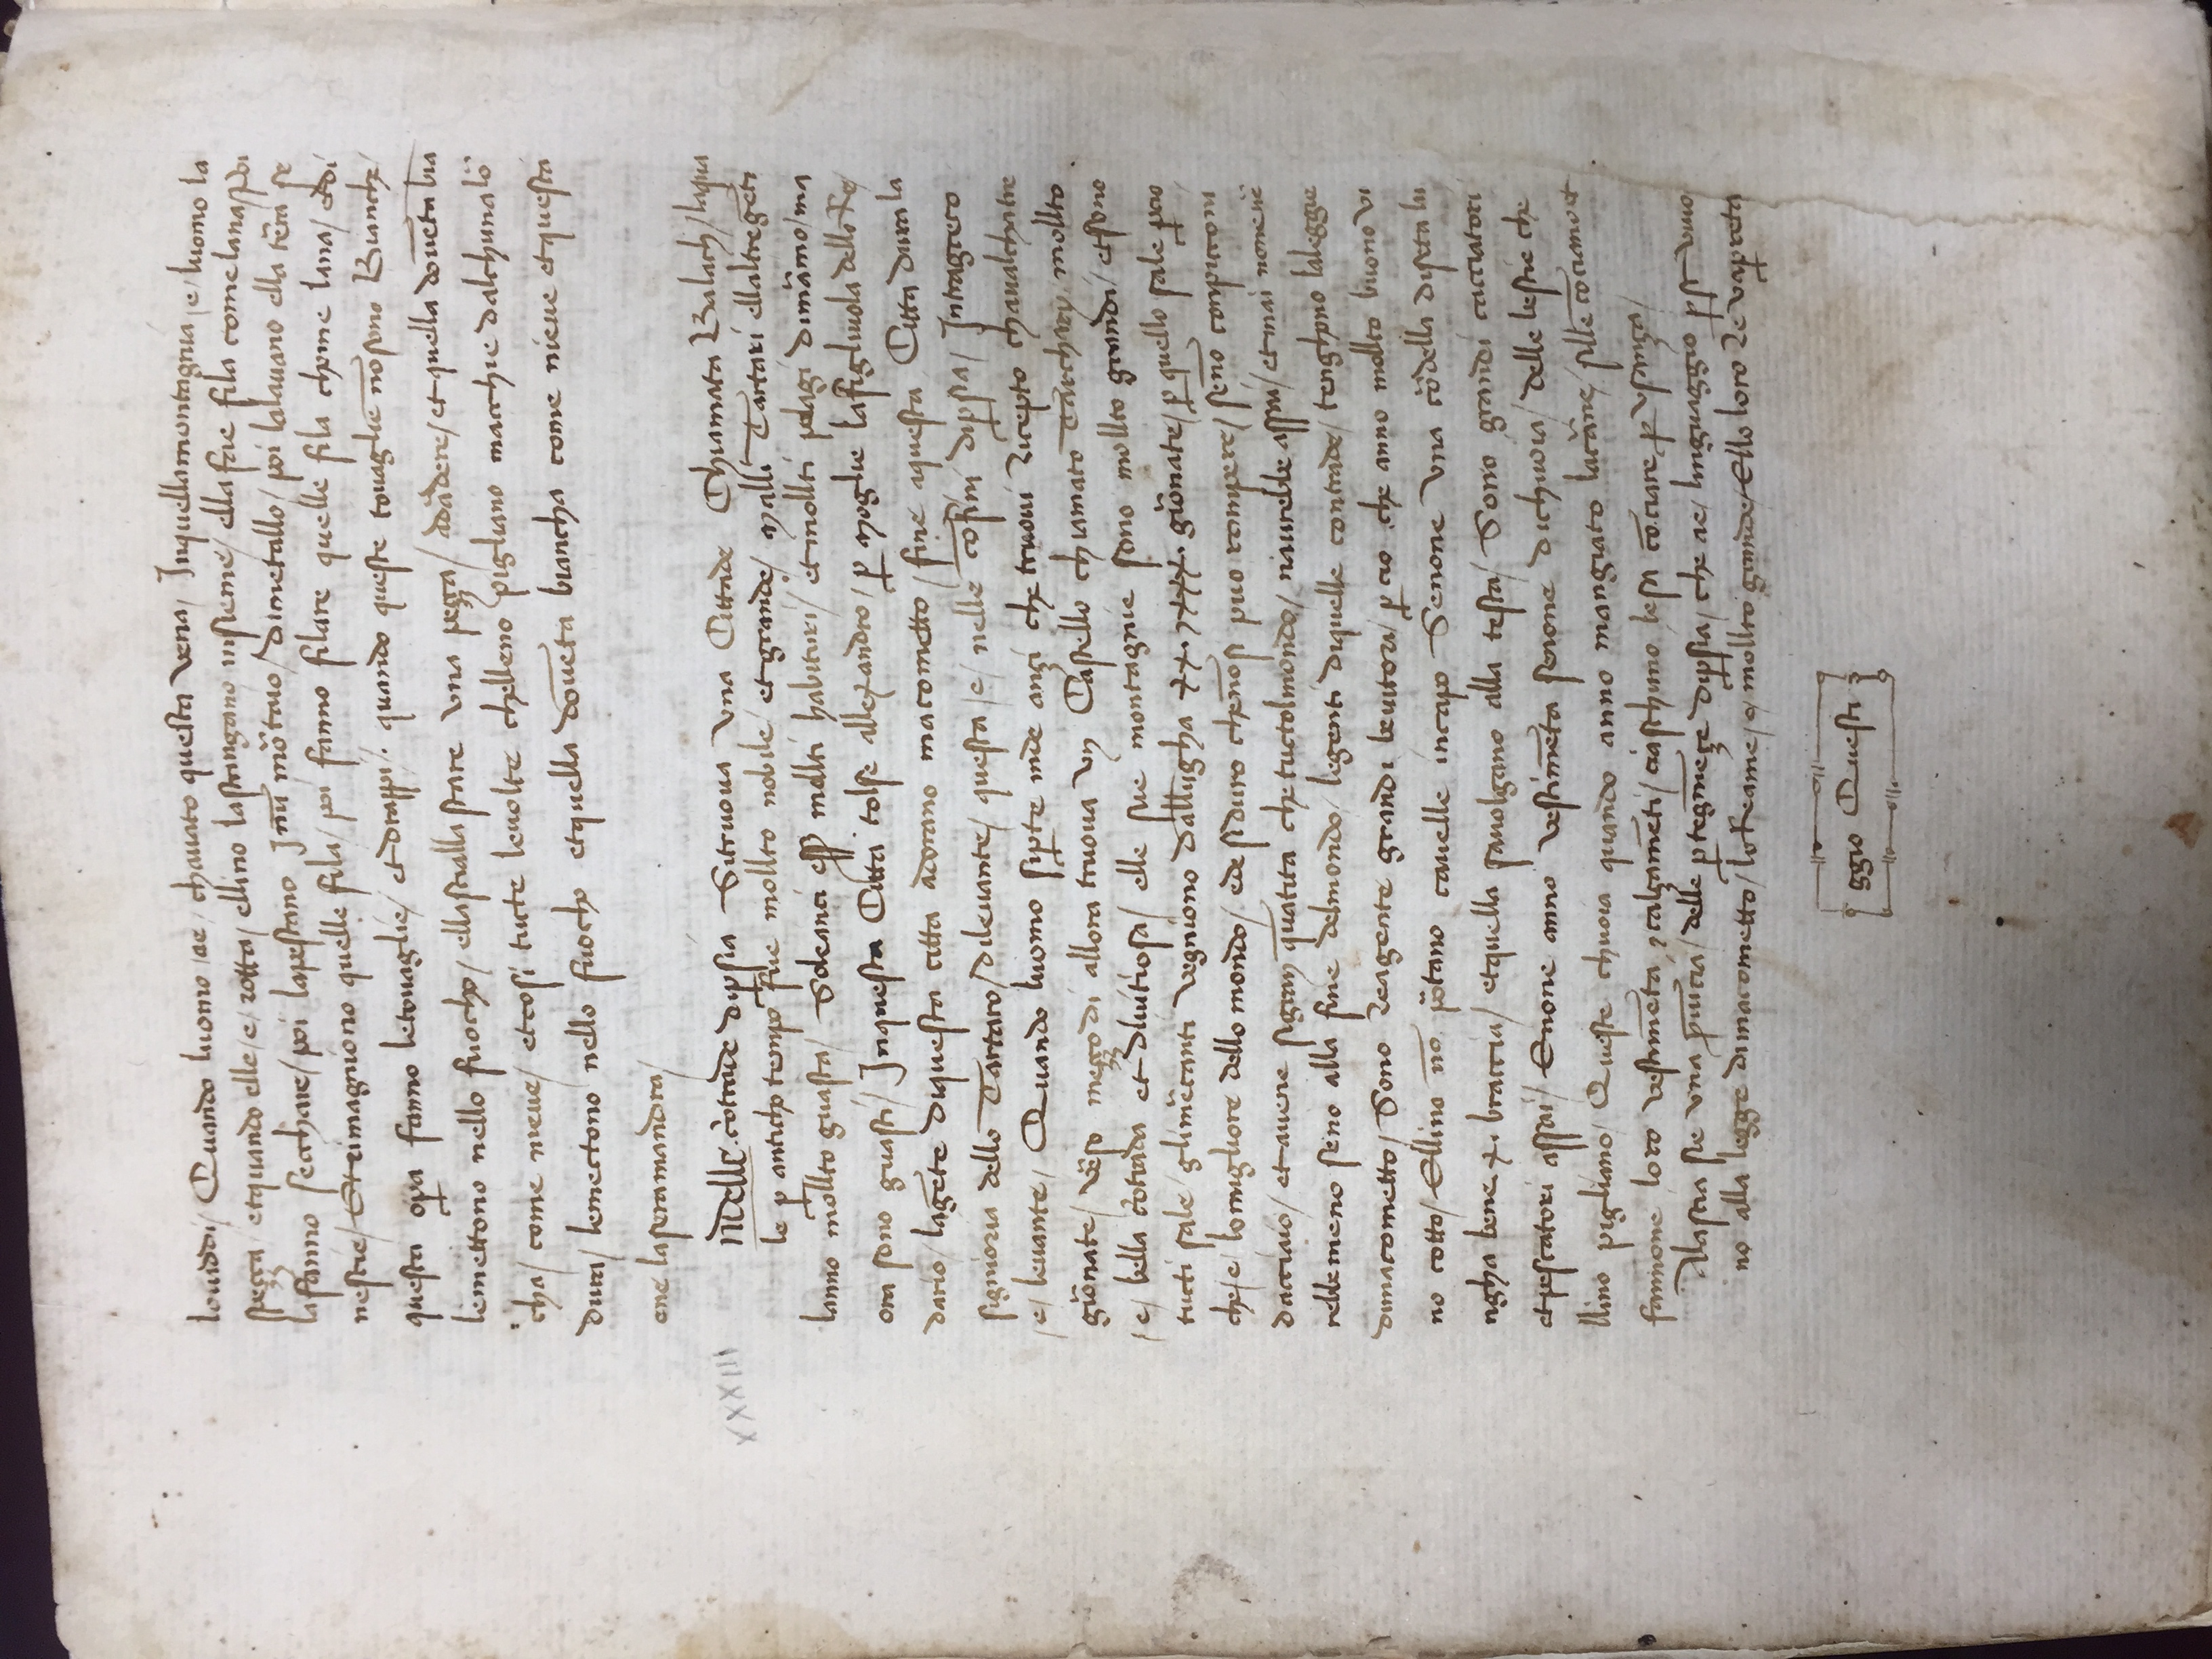 louiddi / Quando luomo / ae / chauato questa vena / Inquellamontagnia / e / luomo la
speçça / etquando elle / e / rotta / ellino lastringano insieme / ella fae fila come lana / Poi
lafanno secchare / poi lapestano Inũ mõtaio / dimetallo / poi lalauano ella tẽra se
nescie / Et rimagniono quelle fila / poi fanno filare quelle fila chome lana / etdi
questa op̱a fanno letouaglie / et drappi /. quando queste touaglie nõsono Bianche /
lemettono nello fuocho / ellascialla stare vna peçça / adãdere / et quella douẽta biã
cha / come neue / etcosi tucte leuolte chelleno pigliano macchie dalchuna lõ
dura / lemectono nello fuocho etquella douẽta biancha come nieue etquesta
ene laseramandra /
XXXIII
Nelle cõtrade dip̱sia Sitruoua vna Cittade Chiamata Balach / laqua
le p̱ anticho tempo fue mollto nobile et grande / Malli Tartari ellaltregẽti
lanno mollto guasta / Soleanci ess̱ mollti habituri / et mollti palagi dimãmo / ma
ora sono guasti / Inquesta Citta tolse allexandro / p̱ moglie lafigliuola dello Re /
dario / lagẽte diquesta citta adorano macometto / fine aquesta Citta dura la
signioria dello Tartaro / dileuante / questa / e / nelle cõfini dip̱sia / Intragreco
/ e / leuante / Quando luomo sip̱te inde ançi che truoui Ricepto chaualcha tre
giõnate / vẽso meççodi allora truoua vn Castello chiamato Tarchary mollto
/ e / bella cõtrada et diuitiosa / elle sue montagnie sono mollto grandi / etsono
tucti sale / glimẽcanti vegniono dallũgha xx. 7 xxx. giõnate / p̱ quello sale p̱cio
che / e / lomigliore dello mondo / ede siduro chenõsi puo rompere / senõ conpicconi
dacciaio / etauene sigran quãtita che tuctolmondo / naurebbe assai / et mai noneuẽ
rebbemeno seno alla fine delmondo / legenti diquelle contrade / tenghono laleggie
dimacometto / Sono Reagente grandi beuitori / p̱ cio che anno mollto buono vi
no cotto / Ellino nõ põtano cauelle incapo Senone vna cõdella diseta lu
ngha bene .x. braccia / etquella sauolgano alla testa / Sono grandi cacciatori
etpescatori assai / Enone anno vestimẽta senone dichuoia / delle bestie che
llino pigliano / Queste chuoia quando anno mangiato lacãne / sille cõciano et
fannone loro vestimẽta 7 calçamẽti / ciaschuno lesa cõciare p̱ vsança /
Alascia sie vna p̱uĩcia / delle p̱tegnẽçe dip̱sia / che ae / linguaggio p̱ se viuo
no alla legge dimacometto / loReame / e / mollto grande / Ello loro Re vap̱reta
ggio Questi